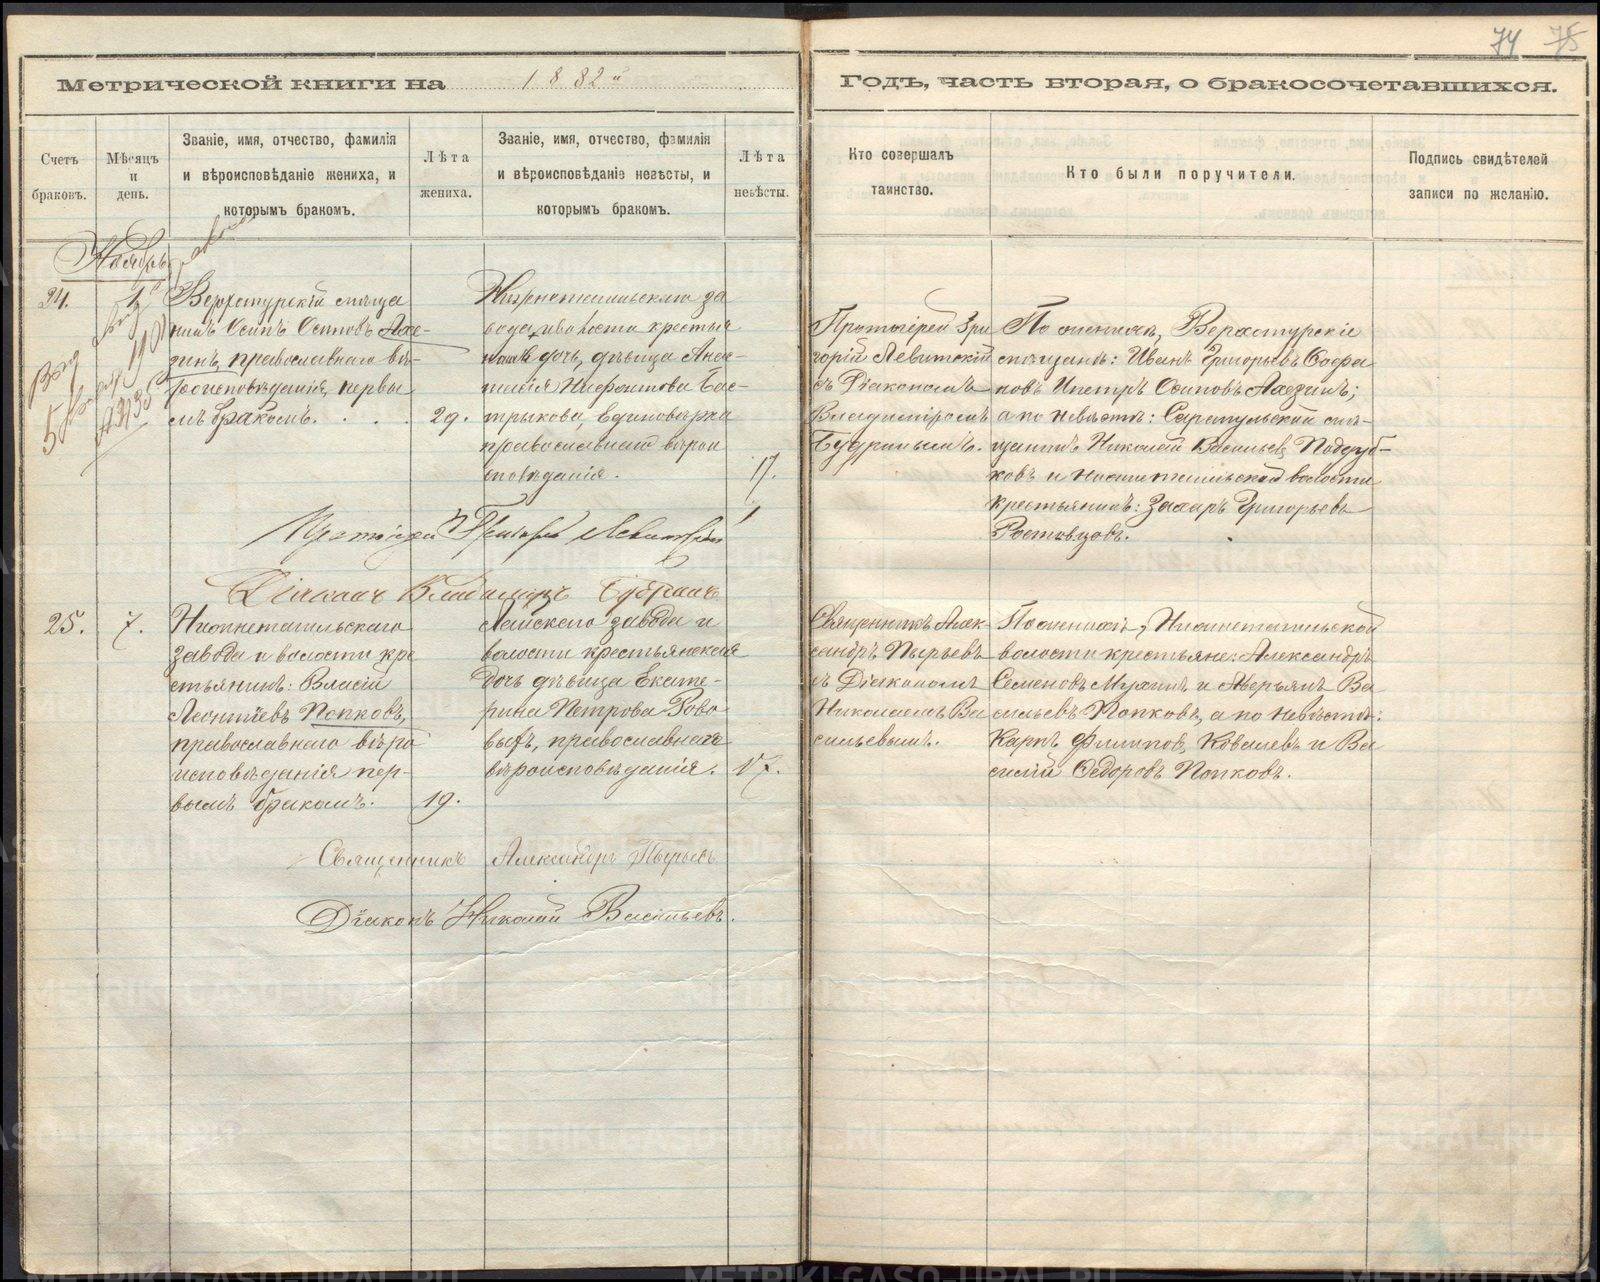 74 75
Метрической книги на 1882й
Годъ, часть вторая, о бракосочетавшихся.
Счетъ браковъ.
Мѣсяцъ и день.
Званіе, имя, отчество, фамилія
и вѣроисповѣданіе жениха, и
которымъ бракомъ.
Лѣта
жениха.
Званіе, имя, отчество, фамилія
и вѣроисповѣданіе невѣсты, и
которымъ бракомъ.
Лѣта
невѣсты.
Кто совершалъ
таинство.
Кто были поручители.
Подпись свидѣтелей
записи по желанію.
Ноябрь
24.
Верхотурскій мѣща
нинъ Осипъ Осиповъ Лае-
зинъ, православнаго вѣ-
роисповѣданія, первы
мъ бракомъ. . . .
29.
Нижнетагильскаго за
вода и волости крестья
дочь, дѣвица Анас-
тасія Ниѳонтова Бас-
трыкова, Единовѣрка
православнаго вѣрои
сповѣданія.
17.
Протоіерей Гри
горій Левитскій
съ Діакономъ
Владиміромъ
Будринымъ.
По женихѣ, Верхотурскіе
мѣщане: Иванъ Григорьевъ
новъ и Петръ Осиповъ Лаезинъ;
а по невѣстѣ: Сарапульскій мѣ-
щанинъ Николай Васильевъ
ковъ и волости
крестьянинъ: Захаръ Григорьевъ
Ростовцовъ.
Протоіерей Григорій Левитскій
Діаконъ Владиміръ Будринъ
25.
7.
Нижнетагильскаго
завода и волости кре
стьянинъ: Власій
Леонтіевъ Попковъ,
православнаго вѣро
исповѣданія пер-
вымъ бракомъ.
19.
Лайскаго завода и
волости крестьянская
дочь дѣвица Екате-
рина Петрова Рово
выхъ, православнаго
вѣроисповѣданія.
17.
Священникъ Алек-
сандръ Пырьевъ
съ Діакономъ
Николаемъ Ва
сильевымъ.
По женихѣ, Нижнетагильской
волости крестьяне: Александръ
Семеновъ Мухинъ и Аверьянъ Ва
сильевъ Попковъ, а по невѣстѣ:
Карпъ Филиповъ Ковалевъ и Ва
силій Ѳедоровъ Попковъ.
Священникъ Александръ Пырьевъ
Діаконъ Николай Васильевъ.
METRIKI.GASO-URAL.RU